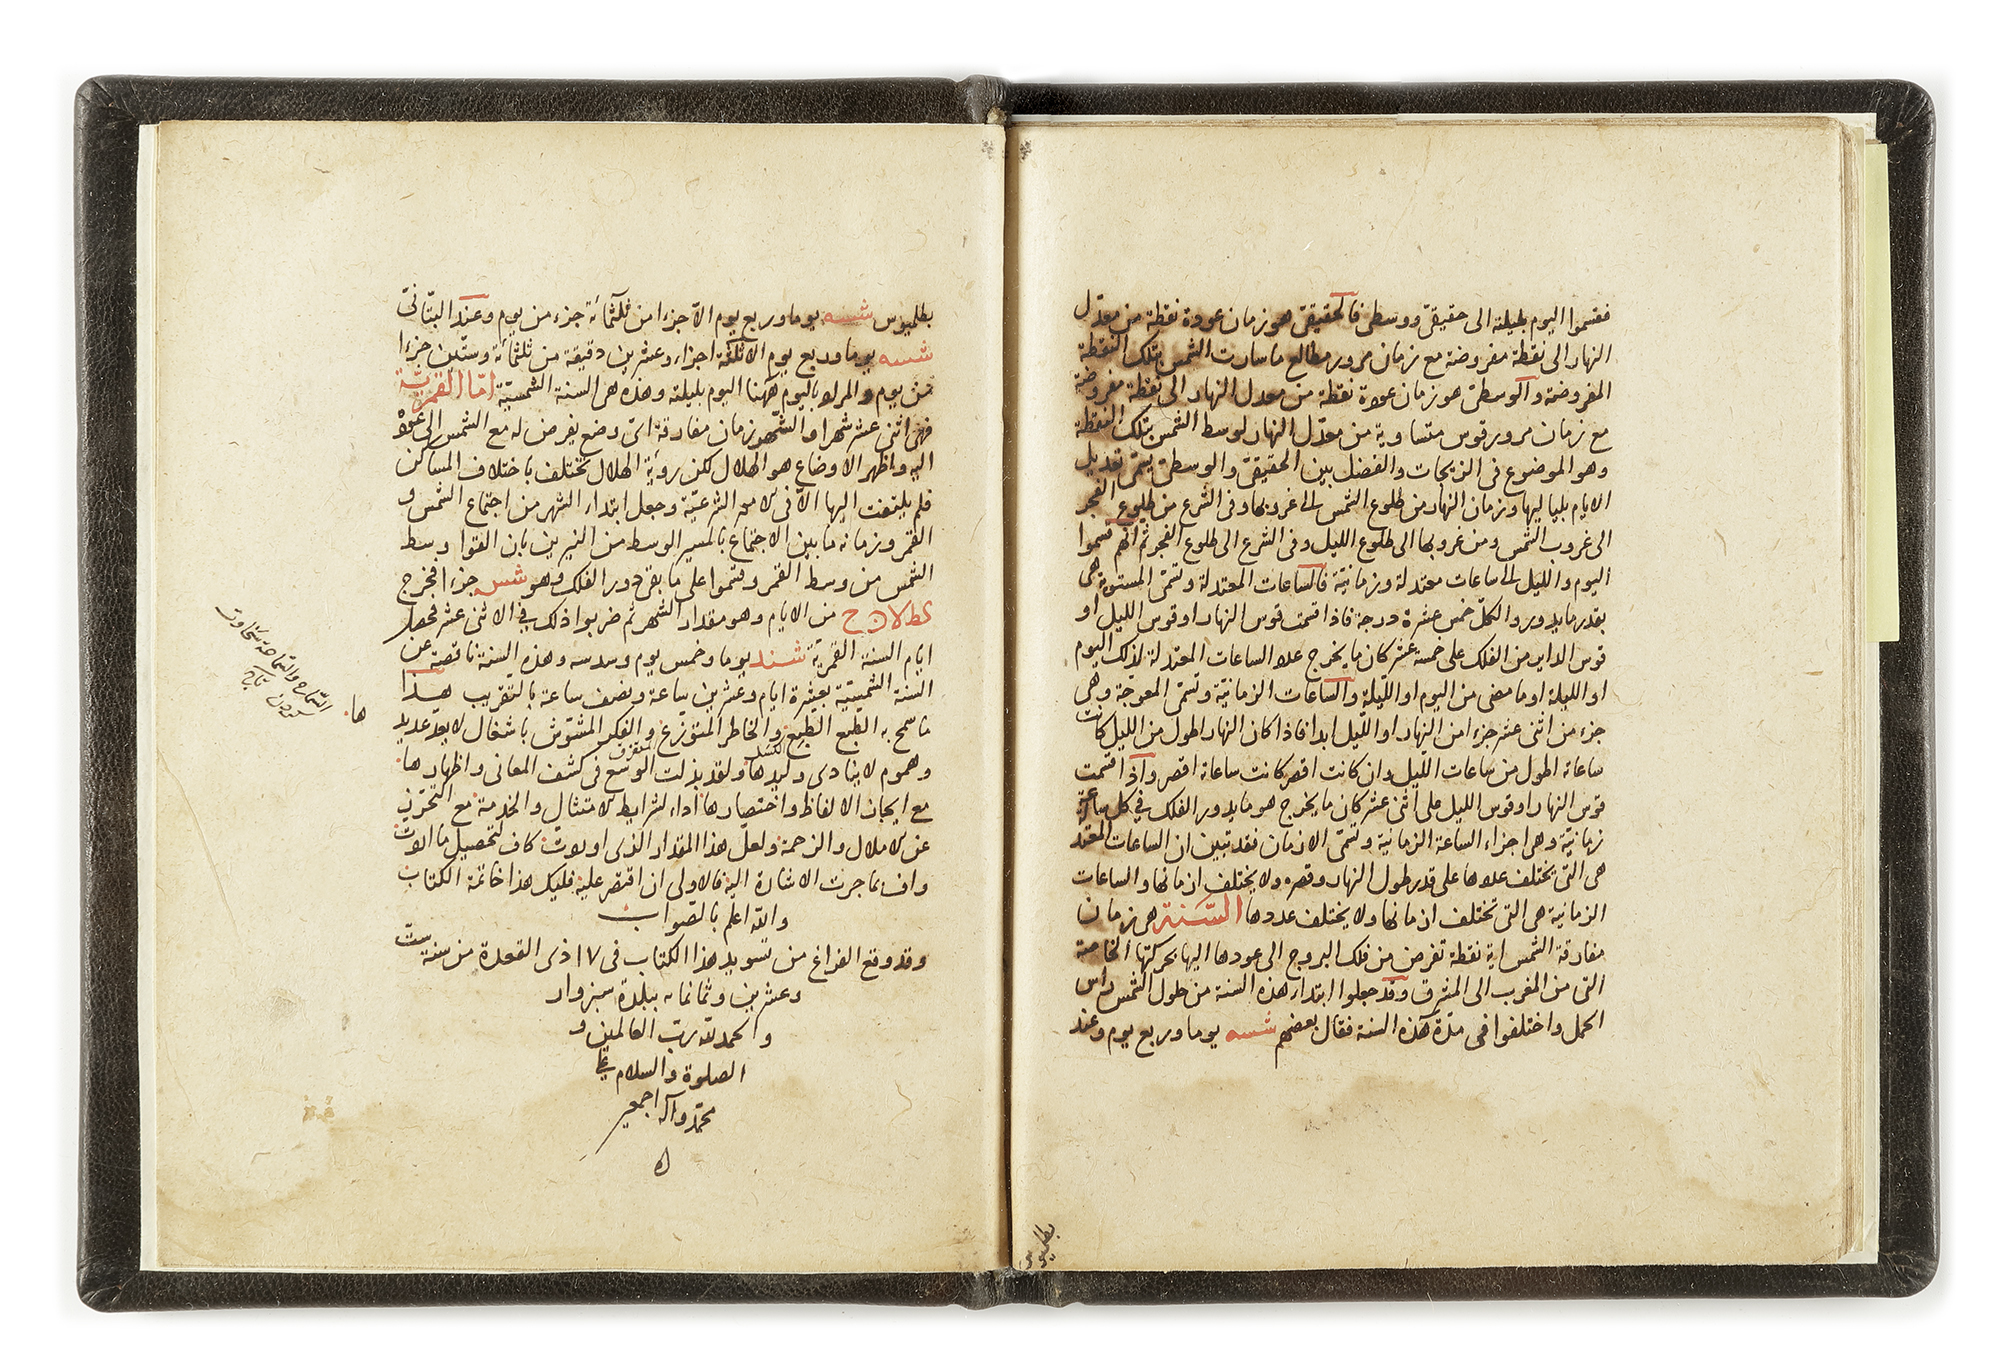 فقسموا اليوم بليلته الى حقيقى ووسطى فالحقيقى هو زمان عودة نقطة من معدّل
النهار الى نقطة مفروضة مع زمان مرور مطالع ما سارت الشمس بتلك النقطة
المفروضة والوسطى هو زمان عودة نقطة من معدل النهار الى نقطة مفروضة
مع زمان مرور قوس متساوية من معدّل النهار لوسط الشمس بتلك النقطة
وهو الموضوع فى الزيجات والفضل بين الحقيقىّ والوسطىّ يسمّى تعديل
الايام بلياليها وزمان النهار من طلوع الشمس الى غروبها وفى الشرع من طلوع الفجر
الى غروب الشمس ومن غروبها الى طلوع الليل وفى الشرع الى طلوع الفجر ثم انهم قسموا
اليوم والليل الى ساعات معتدلة وزمانيّة فالساعات المعتدلة وتسمّى المستوية هى
بقدر ما يدور والكلّ خمس عشرة درجة فاذا قسمت قوس النهار او قوس الليل او
قوس الداير من الفلك على خمسة عشر كان ما يخرج عدد الساعات المعتدلة لذلك اليوم
او الليلة او ما مضى من اليوم او اللّيلة والساعات الزمانيّة وتسمّى المعوجّة وهى
جزء من اثنى عشر جزءا من النهار او اللّيل ابدا فاذا كان النهار اطول من الليل كانت
ساعاته اطول من ساعات اللّيل وان كانت اقصر كانت ساعاته اقصر واذا قسمت
قوس النهار او قوس الليل على اثنى عشر كان ما يخرج هو ما يدور الفلك فى كل ساعة
زمانيّة وهى اجزاء الساعة الزمانية وتسمّى الازمان فقد تبين ان الساعات المعتد
هى التى يختلف عددها على قدر طول النهار وقصره ولا يختلف ازمانها والساعات
الزمانية هى التى تختلف ازمانها ولا يختلف عددها السّنة هى زمان
مفارقة الشمس اية نقطة تفرض من فلك البروج الى عودها اليها بحركتها الخاصة
التى من المغرب الى المشرق وقد جعلوا ابتداء هذه السنة من حلول الشمس رأس
الحمل واختلفوا فى مدّة هذه السنة فقال بعضهم شسه يوما وربع يوم وعند
بطلميوس
بطلميوس شسه يوما وربع يوم الاّ جزءا من ثلثمائة جزء من يوم وعند البتّانى
شسه يوما وربع يوم الا ثلثة اجزاء وعشرين دقيقة من ثلثمائة وستّين جزءا
من يوم والمراد باليوم ههنا اليوم بليلته وهذه هى السنة الشمسيّة امّا القمريّة
فهى اثنى عشر شهرا والشّهر زمان مفارقة اىّ وضع يفرض له مع الشمس الى عوده
اليه واظهر الاوضاع هو الهلال لكن رؤية الهلال تختلف باختلاف المساكن
فلم يلتفت اليها الاّ فى الامور الشرعيّة وجعل ابتداء الشهر من اجتماع الشمس و
القمر وزمانه ما بين الاجتماع بالمسير الوسط من النيرين بان القوا وسط
الشمس من وسط القمر وقسموا على ما بقى دور الفلك وهو شس جزءا فخرج
من الايام وهو مقدار الشهر ثم ضربوا ذلك فى الاثنى عشر فحصل
ايام السنة القمرية شند يوما وخمس يوم وسدسه وهذه السنة ناقصة عن
السنة الشمسيّة بعشرة ايام وعشرين ساعة ونصف ساعة بالتقريب هذا
ما سمح به الطبع الطبع والخاطر المتوزع والفكر المشوّش باشغال لا يعد عديد
الكسل المتفرق
وهموم لا ينادى وليدها ولقد بذلت الوسع فى كشف المعانى واظهارها
مع ايجاز الالفاظ واختصارها اداء لشرايط الامتثال والخدمة مع التحرّز
عن الاملال والزحمة ولعلّ هذا المقدار الذى اوردت كاف لتحصيل ما
جرت الاشارة اليه فالاولى ان اقتصر عليه فليكن هذا خاتمة الكتاب
والله اعلم بالصواب
وقد وقع الفراغ من تسويد هذا الكتاب فى ١٧ ذى القعدة من سنة ست
وعشرين وثمانمايه ببلدة سبزوار
والحمد لله ربّ العالمين و
الصلوة والسلام على
محمّد وآله اجمعين
ها